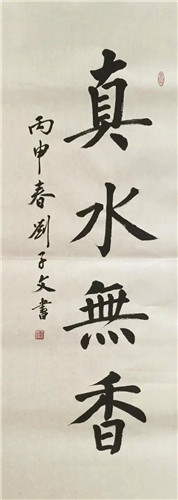 真水無香
丙申春劉子文書